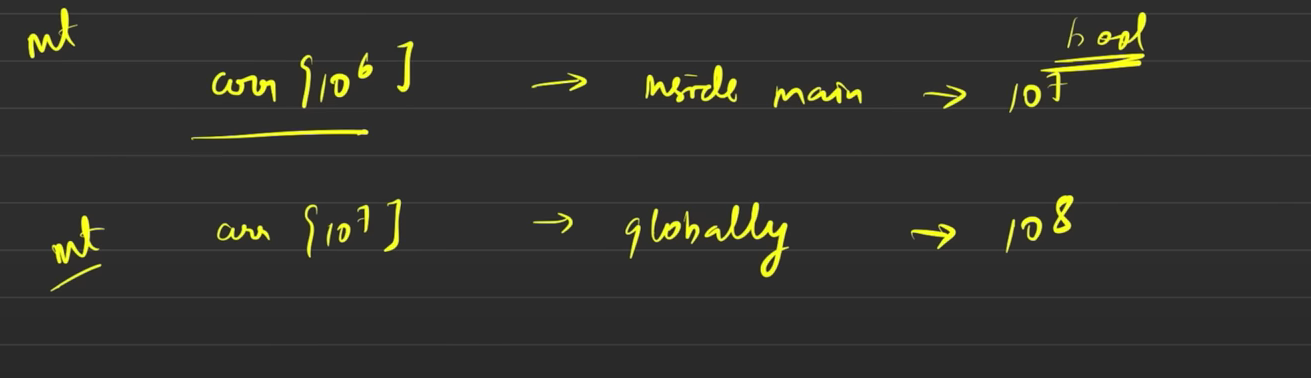 int arr[10⁶] → inside main → 10⁷ bool
int arr[10⁷] → globally → 10⁸